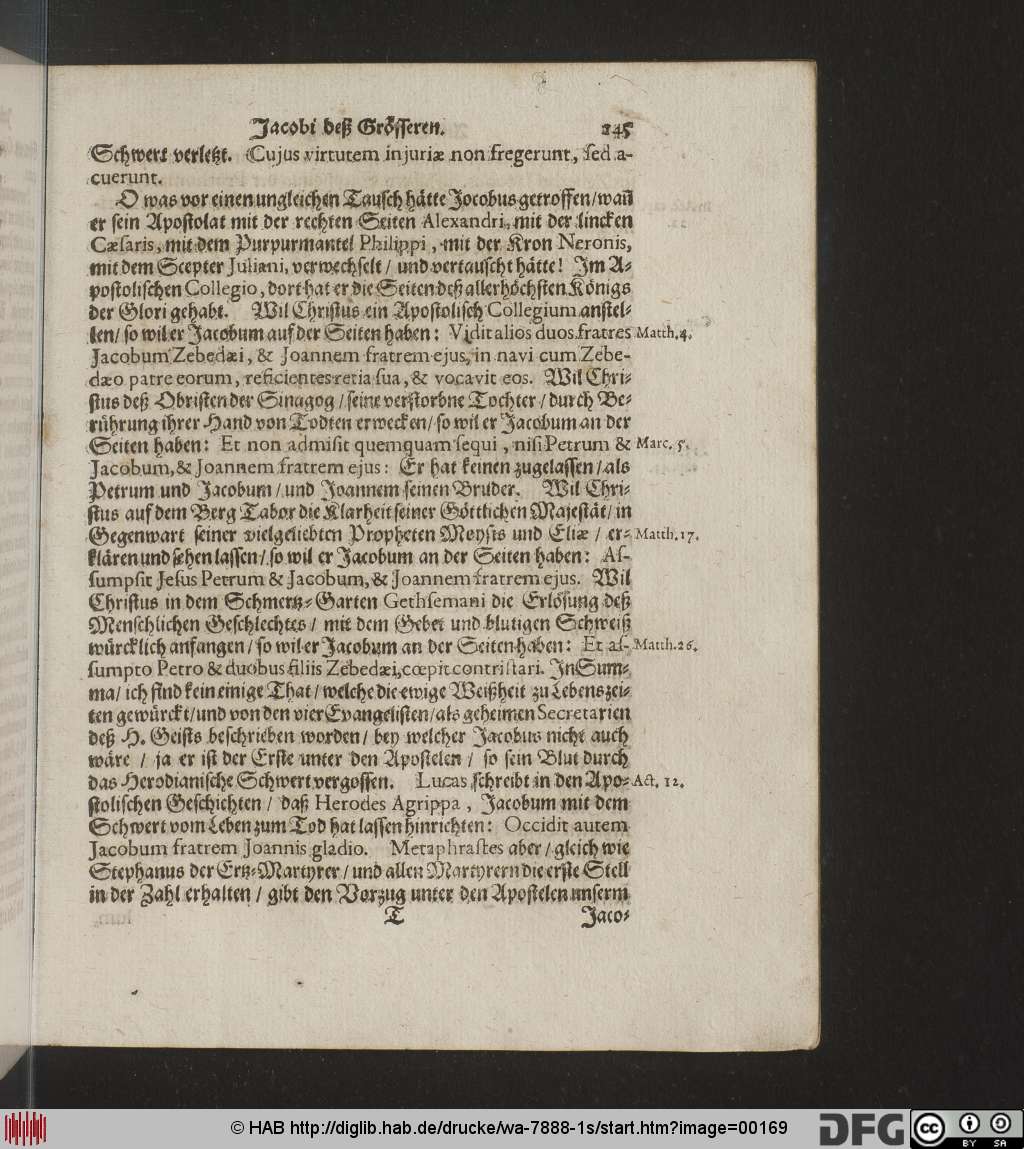 Jacobi deß Grösseren. 145
Schwert verletzt. Cujus virtutem injuriæ non fregerunt, sed a-
cuerunt.
O was vor einen ungleichen Tausch hätte Jocobus getroffen/wañ
er sein Apostolat mit der rechten Seiten Alexandri, mit der lincken
Cæsaris, mit dem Purpurmantel Philippi, mit der Kron Neronis,
mit dem Scepter Juliani, verwechselt / und vertauscht hätte! Im A-
postolischen Collegio, dort hat er die Seiten deß allerhöchsten Königs
der Glori gehabt. Wil Christus ein Apostolisch Collegium anstel-
len/ so wil er Jacobum auf der Seiten haben: Vidit alios duos fratres Matth. 4.
Jacobum Zebedæi, & Joannem fratrem ejus, in navi cum Zebe-
dæo patre eorum, reficientes retia sua, & vocavit eos. Wil Chri-
stus deß Obristen der Sinagog / seine verstorbne Tochter / durch Be-
rührung ihrer Hand von Todten erwecken/ so wil er Jacobum an der
Seiten haben: Et non admisit quemquam sequi, nisi Petrum & Marc. 5.
Jacobum, & Joannem fratrem ejus: Er hat keinen zugelassen/als
Petrum und Jacobum / und Joannem seinen Bruder. Wil Chri-
stus auf dem Berg Tabor die Klarheit seiner Göttlichen Majestät/ in
Gegenwart seiner vielgeliebten Propheten Moysis und Eliæ / er- Matth. 17.
klären und sehen lassen/ so wil er Jacobum an der Seiten haben: As-
sumpsit Jesus Petrum & Jacobum, & Joannem fratrem ejus. Wil
Christus in dem Schmertz-Garten Gethsemani die Erlösung deß
Menschlichen Geschlechtes / mit dem Gebet und blutigen Schweiß
würcklich anfangen / so wil er Jacobum an der Seiten haben: Et as- Matth. 26.
sumpto Petro & duobus filiis Zebedæi, cœpit contristari. In Sum-
ma/ ich find kein einige That / welche die ewige Weißheit zu Lebenszei-
ten gewürckt/und von den vier Evangelisten/als geheimen Secretarien
deß H. Geists beschrieben worden / bey welcher Jacobus nicht auch
wäre / ja er ist der Erste unter den Apostelen / so sein Blut durch
das Herodianische Schwert vergossen. Lucas schreibt in den Apo- Act. 12.
stolischen Geschichten / daß Herodes Agrippa, Jacobum mit dem
Schwert vom Leben zum Tod hat lassen hinrichten: Occidit autem
Jacobum fratrem Joannis gladio. Metaphrastes aber / gleich wie
Stephanus der Ertz-Martyrer / und allen Martyrern die erste Stell
in der Zahl erhalten / gibt den Vorzug unter den Apostelen unserm
T Jaco-
© HAB http://diglib.hab.de/drucke/wa-7888-1s/start.htm?image=00169
DFG
cc BY SA